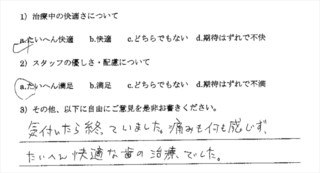 1) 治療中の快適さについて
a.たいへん快適 b.快適 c.どちらでもない d.期待はずれで不快
2) スタッフの優しさ・配慮について
a.たいへん満足 b.満足 c.どちらでもない d.期待はずれで不満
3) その他、以下に自由にご意見を是非お書きください。
気付いたら終っていました。痛みも何も感じず、
たいへん快適な歯の治療でした。